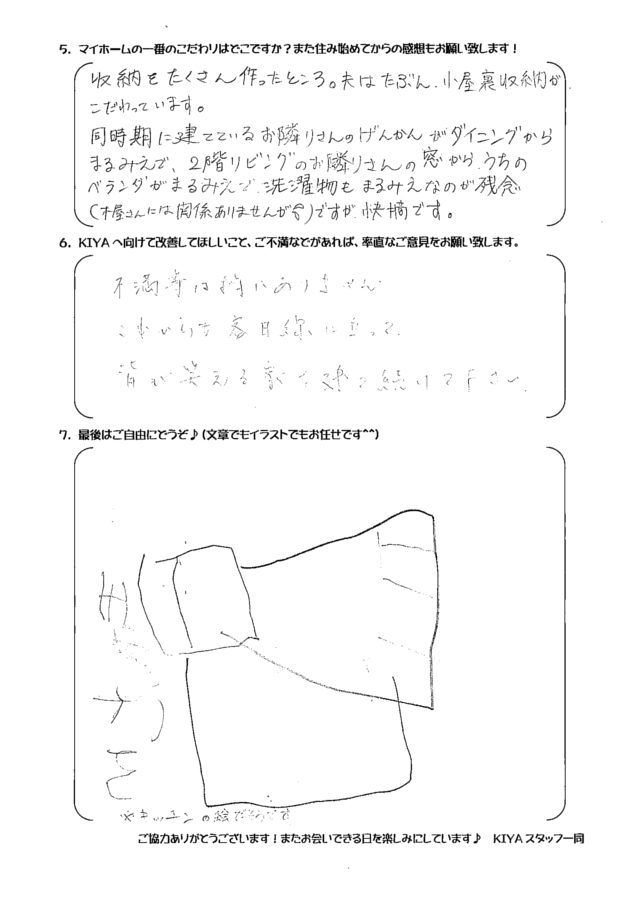 5. マイホームの一番のこだわりはどこですか？また住み始めてからの感想もお願い致します！
収納をたくさん作ったところ。夫はたぶん、小屋裏収納が
こだわっています。
同時期に建てているお隣りさんのげんかんがダイニングから
まるみえで、2階リビングのお隣りさんの窓から、うちの
ベランダがまるみえで、洗濯物もまるみえなのが残念
(木屋さんには関係ありませんが)ですが、快適です。
6. KIYAへ向けて改善してほしいこと、ご不満などがあれば、率直なご意見をお願い致します。
不満等は特にありません
これからもお客目線に立って、
皆が笑える家を建て続けて下さい。
7. 最後はご自由にどうぞ♪(文章でもイラストでもお任せです^^)
※キッチンの絵だそうです
ご協力ありがとうございます！またお会いできる日を楽しみにしています♪ KIYAスタッフ一同